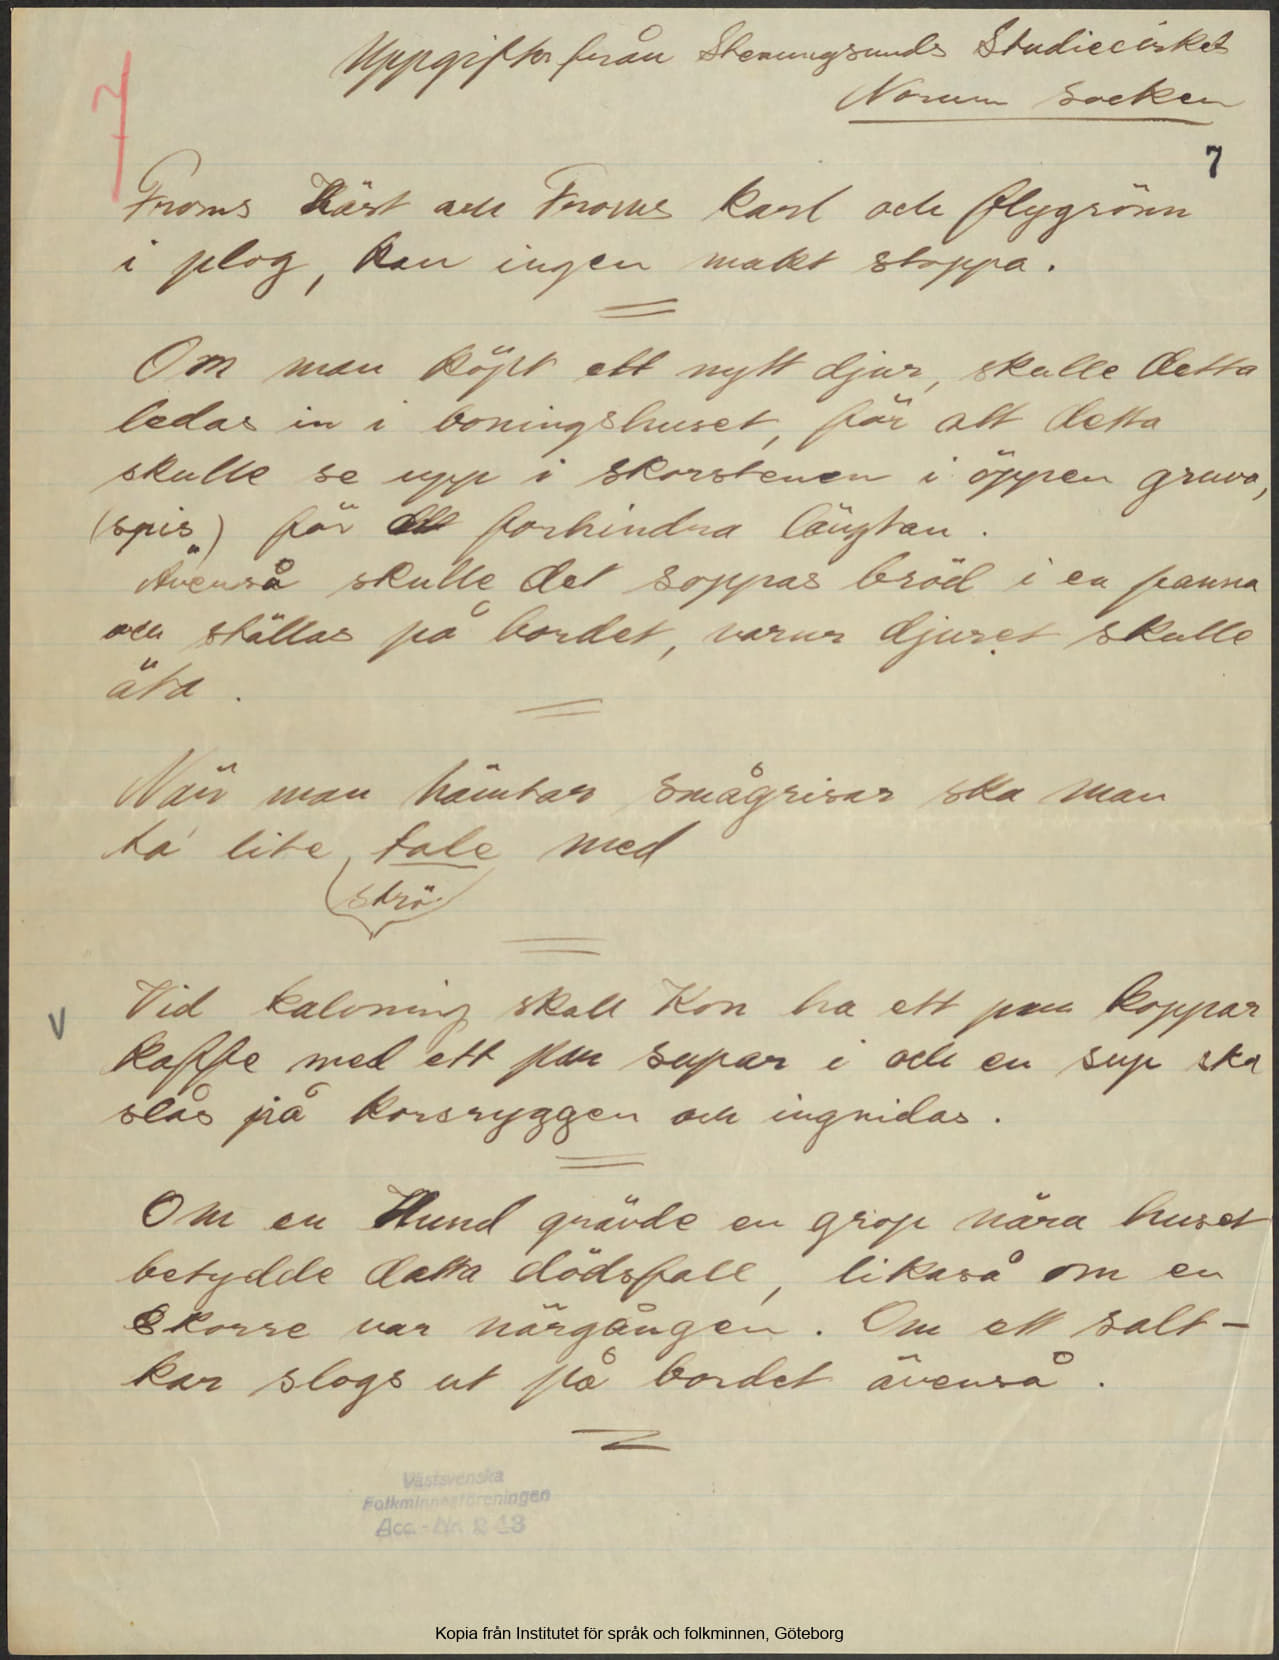 Uppgifter från Stenungsunds Studiecirkel
Norum socken
7
7
Froms Häst och Froms karl och flygrönn
i plog, kan ingen makt stoppa.
Om man köpt ett nytt djur, skulle detta
ledas in i boningshuset, för att detta
skulle se upp i skorstenen i öppen gruva,
(spis) för att forhindra längtan.
Ävenså skulle det soppas bröd i en panna
och ställas på bordet, varur djuret skulle
äta.
När man hämtar smågrisar ska man
ta lite fale med
strö
V
Vid kalvning skall Kon ha ett par koppar
kaffe med ett par supar i och en sup ska
slås på korsryggen och ingnidas.
Om en Hund grävde en grop nära huset
betydde detta dödsfall, likaså om en
Skorre var närgången. Om ett salt-
kar slogs ut på bordet ävenså.
Västsvenska
Folkminnesföreningen
Acc.-Nr.
Kopia från Institutet för språk och folkminnen, Göteborg